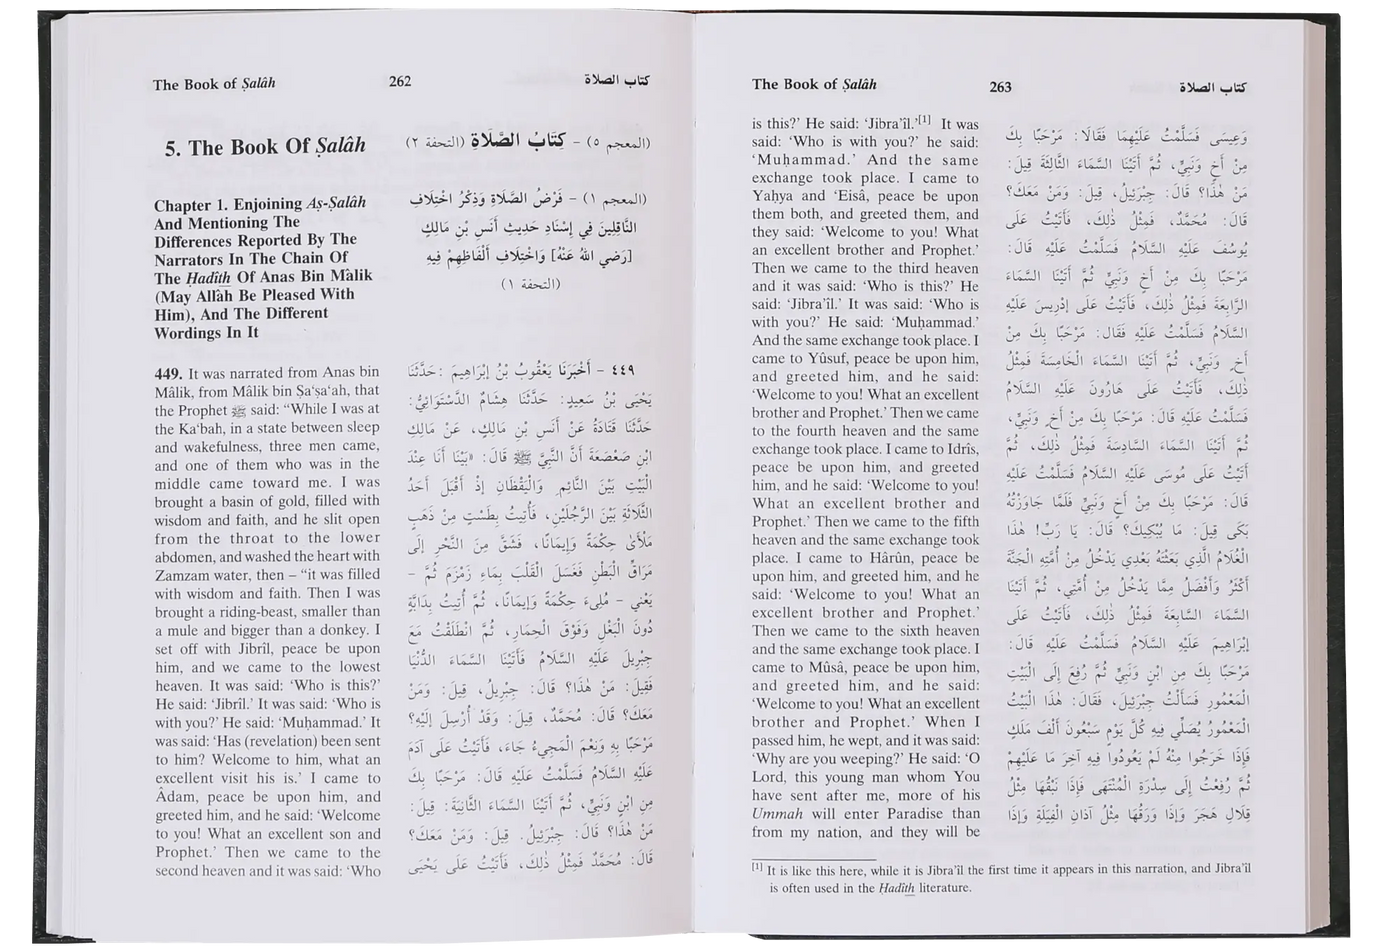 The Book of Ṣalâh 262 كتاب الصلاة
5. The Book Of Ṣalâh
(المعجم ٥) - كِتَابُ الصَّلَاةِ (التحفة ٢)
Chapter 1. Enjoining Aṣ-Ṣalâh
And Mentioning The
Differences Reported By The
Narrators In The Chain Of
The Ḥadîth Of Anas Bin Mâlik
(May Allâh Be Pleased With
Him), And The Different
Wordings In It
(المعجم ١) - فَرْضُ الصَّلَاةِ وَذِكْرُ اخْتِلَافِ
النَّاقِلِينَ فِي إِسْنَادِ حَدِيثِ أَنَسِ بْنِ مَالِكٍ
[رَضِي اللهُ عَنْهُ] وَاخْتِلَافِ أَلْفَاظِهِمْ فِيهِ
(التحفة ١)
449. It was narrated from Anas bin
Mâlik, from Mâlik bin Ṣa‘ṣa‘ah, that
the Prophet ﷺ said: “While I was at
the Ka‘bah, in a state between sleep
and wakefulness, three men came,
and one of them who was in the
middle came toward me. I was
brought a basin of gold, filled with
wisdom and faith, and he slit open
from the throat to the lower
abdomen, and washed the heart with
Zamzam water, then – “it was filled
with wisdom and faith. Then I was
brought a riding-beast, smaller than
a mule and bigger than a donkey. I
set off with Jibrîl, peace be upon
him, and we came to the lowest
heaven. It was said: ‘Who is this?’
He said: ‘Jibrîl.’ It was said: ‘Who is
with you?’ He said: ‘Muḥammad.’ It
was said: ‘Has (revelation) been sent
to him? Welcome to him, what an
excellent visit his is.’ I came to
Âdam, peace be upon him, and
greeted him, and he said: ‘Welcome
to you! What an excellent son and
Prophet.’ Then we came to the
second heaven and it was said: ‘Who
٤٤٩ - أَخْبَرَنَا يَعْقُوبُ بْنُ إِبْرَاهِيمَ: حَدَّثَنَا
يَحْيَى بْنُ سَعِيدٍ: حَدَّثَنَا هِشَامٌ الدَّسْتَوَائِيُّ:
حَدَّثَنَا قَتَادَةُ عَنْ أَنَسِ بْنِ مَالِكٍ، عَنْ مَالِكِ
ابْنِ صَعْصَعَةَ أَنَّ النَّبِيَّ ﷺ قَالَ: «بَيْنَا أَنَا عِنْدَ
الْبَيْتِ بَيْنَ النَّائِمِ وَالْيَقْظَانِ إِذْ أَقْبَلَ أَحَدُ
الثَّلَاثَةِ بَيْنَ الرَّجُلَيْنِ، فَأُتِيتُ بِطَسْتٍ مِنْ ذَهَبٍ
مَلْأَى حِكْمَةً وَإِيمَانًا، فَشَقَّ مِنَ النَّحْرِ إِلَى
مَرَاقِّ الْبَطْنِ فَغَسَلَ الْقَلْبَ بِمَاءِ زَمْزَمَ ثُمَّ -
يَعْنِي - مُلِىءَ حِكْمَةً وَإِيمَانًا، ثُمَّ أُتِيتُ بِدَابَّةٍ
دُونَ الْبَغْلِ وَفَوْقَ الْحِمَارِ، ثُمَّ انْطَلَقْتُ مَعَ
جِبْرِيلَ عَلَيْهِ السَّلَامُ فَأَتَيْنَا السَّمَاءَ الدُّنْيَا
فَقِيلَ: مَنْ هٰذَا؟ قَالَ: جِبْرِيلُ، قِيلَ: وَمَنْ
مَعَكَ؟ قَالَ: مُحَمَّدٌ، قِيلَ: وَقَدْ أُرْسِلَ إِلَيْهِ؟
مَرْحَبًا بِهِ وَنِعْمَ الْمَجِيءُ جَاءَ، فَأَتَيْتُ عَلَى آدَمَ
عَلَيْهِ السَّلَامُ فَسَلَّمْتُ عَلَيْهِ قَالَ: مَرْحَبًا بِكَ
مِنِ ابْنٍ وَنَبِيٍّ، ثُمَّ أَتَيْنَا السَّمَاءَ الثَّانِيَةَ: قِيلَ:
مَنْ هٰذَا؟ قَالَ: جِبْرَئِيلُ. قِيلَ: وَمَنْ مَعَكَ؟
قَالَ: مُحَمَّدٌ فَمِثْلُ ذٰلِكَ، فَأَتَيْتُ عَلَى يَحْيَى
The Book of Ṣalâh 263 كتاب الصلاة
is this?’ He said: ‘Jibra’îl.’[1] It was
said: ‘Who is with you?’ he said:
‘Muḥammad.’ And the same
exchange took place. I came to
Yaḥya and ‘Eisâ, peace be upon
them both, and greeted them, and
they said: ‘Welcome to you! What
an excellent brother and Prophet.’
Then we came to the third heaven
and it was said: ‘Who is this?’ He
said: ‘Jibra’îl.’ It was said: ‘Who is
with you?’ He said: ‘Muḥammad.’
And the same exchange took place. I
came to Yûsuf, peace be upon him,
and greeted him, and he said:
‘Welcome to you! What an excellent
brother and Prophet.’ Then we came
to the fourth heaven and the same
exchange took place. I came to Idrîs,
peace be upon him, and greeted
him, and he said: ‘Welcome to you!
What an excellent brother and
Prophet.’ Then we came to the fifth
heaven and the same exchange took
place. I came to Hârûn, peace be
upon him, and greeted him, and he
said: ‘Welcome to you! What an
excellent brother and Prophet.’
Then we came to the sixth heaven
and the same exchange took place. I
came to Mûsâ, peace be upon him,
and greeted him, and he said:
‘Welcome to you! What an excellent
brother and Prophet.’ When I
passed him, he wept, and it was said:
‘Why are you weeping?’ He said: ‘O
Lord, this young man whom You
have sent after me, more of his
Ummah will enter Paradise than
from my nation, and they will be
وَعِيسَى فَسَلَّمْتُ عَلَيْهِمَا فَقَالَا: مَرْحَبًا بِكَ
مِنْ أَخٍ وَنَبِيٍّ، ثُمَّ أَتَيْنَا السَّمَاءَ الثَّالِثَةَ قِيلَ:
مَنْ هٰذَا؟ قَالَ: جِبْرَئِيلُ، قِيلَ: وَمَنْ مَعَكَ؟
قَالَ: مُحَمَّدٌ، فَمِثْلُ ذٰلِكَ، فَأَتَيْتُ عَلَى
يُوسُفَ عَلَيْهِ السَّلَامُ فَسَلَّمْتُ عَلَيْهِ قَالَ:
مَرْحَبًا بِكَ مِنْ أَخٍ وَنَبِيٍّ ثُمَّ أَتَيْنَا السَّمَاءَ
الرَّابِعَةَ فَمِثْلُ ذٰلِكَ، فَأَتَيْتُ عَلَى إِدْرِيسَ عَلَيْهِ
السَّلَامُ فَسَلَّمْتُ عَلَيْهِ فَقَالَ: مَرْحَبًا بِكَ مِنْ
أَخٍ وَنَبِيٍّ، ثُمَّ أَتَيْنَا السَّمَاءَ الْخَامِسَةَ فَمِثْلُ
ذٰلِكَ، فَأَتَيْتُ عَلَى هَارُونَ عَلَيْهِ السَّلَامُ
فَسَلَّمْتُ عَلَيْهِ قَالَ: مَرْحَبًا بِكَ مِنْ أَخٍ وَنَبِيٍّ،
ثُمَّ أَتَيْنَا السَّمَاءَ السَّادِسَةَ فَمِثْلُ ذٰلِكَ، ثُمَّ
أَتَيْتُ عَلَى مُوسَى عَلَيْهِ السَّلَامُ فَسَلَّمْتُ عَلَيْهِ
قَالَ: مَرْحَبًا بِكَ مِنْ أَخٍ وَنَبِيٍّ فَلَمَّا جَاوَزْتُهُ
بَكَى قِيلَ: مَا يُبْكِيكَ؟ قَالَ: يَا رَبِّ! هٰذَا
الْغُلَامُ الَّذِي بَعَثْتَهُ بَعْدِي يَدْخُلُ مِنْ أُمَّتِهِ الْجَنَّةَ
أَكْثَرُ وَأَفْضَلُ مِمَّا يَدْخُلُ مِنْ أُمَّتِي، ثُمَّ أَتَيْنَا
السَّمَاءَ السَّابِعَةَ فَمِثْلُ ذٰلِكَ، فَأَتَيْتُ عَلَى
إِبْرَاهِيمَ عَلَيْهِ السَّلَامُ فَسَلَّمْتُ عَلَيْهِ قَالَ:
مَرْحَبًا بِكَ مِنِ ابْنٍ وَنَبِيٍّ ثُمَّ رُفِعَ إِلَى الْبَيْتِ
الْمَعْمُورِ فَسَأَلْتُ جِبْرَئِيلَ، فَقَالَ: هٰذَا الْبَيْتُ
الْمَعْمُورُ يُصَلِّي فِيهِ كُلَّ يَوْمٍ سَبْعُونَ أَلْفَ مَلَكٍ
فَإِذَا خَرَجُوا مِنْهُ لَمْ يَعُودُوا فِيهِ آخِرَ مَا عَلَيْهِمْ
ثُمَّ رُفِعْتُ إِلَى سِدْرَةِ الْمُنْتَهَى فَإِذَا نَبْقُهَا مِثْلُ
قِلَالِ هَجَرَ وَإِذَا وَرَقُهَا مِثْلُ آذَانِ الْفِيَلَةِ وَإِذَا
[1] It is like this here, while it is Jibra’îl the first time it appears in this narration, and Jibra’îl
is often used in the Ḥadîth literature.